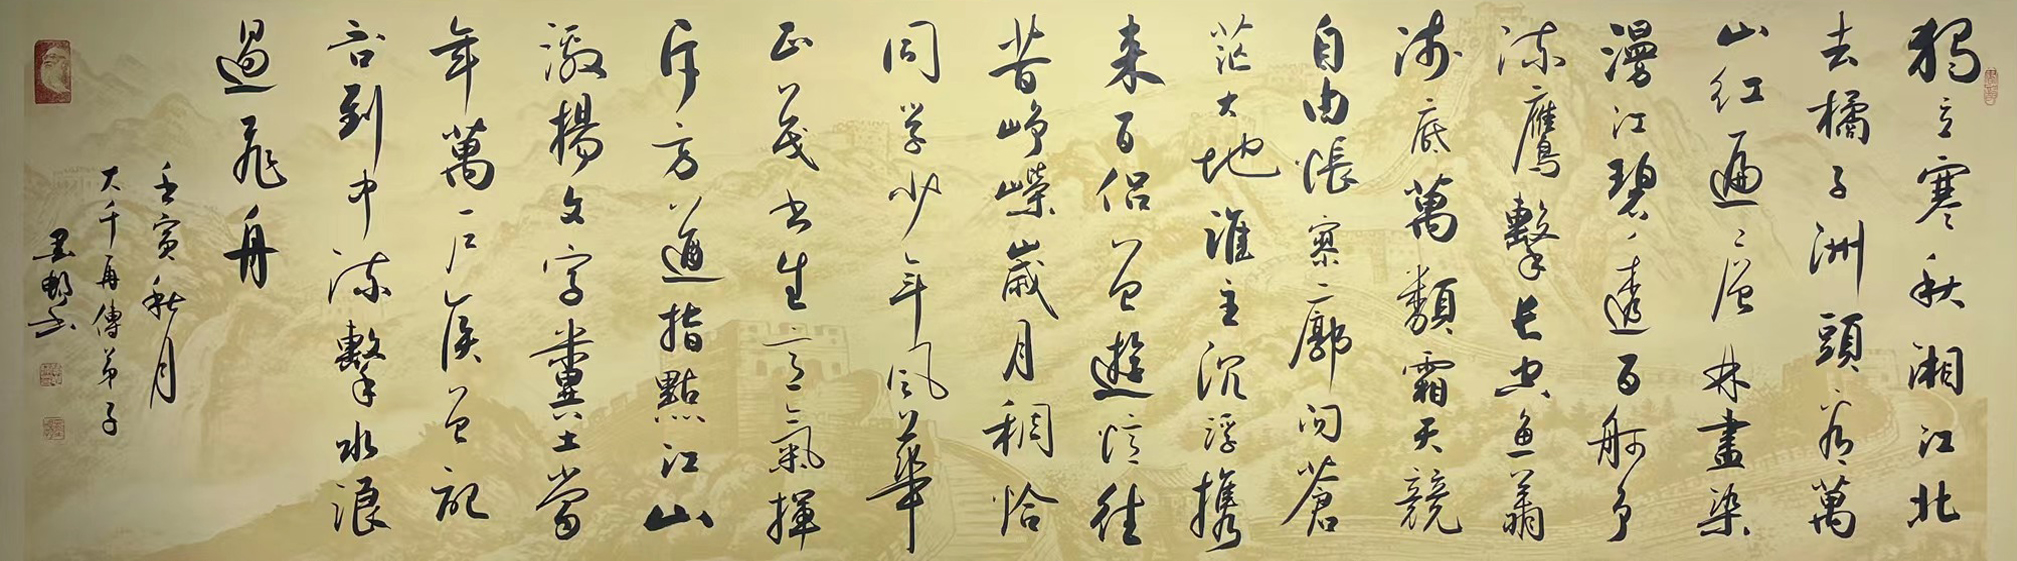 獨立寒秋湘江北
去橘子洲頭看萬
山红遍層林盡染
漫江碧透百舸争
流鷹擊長空魚翔
淺底萬類霜天競
自由悵寥廓問蒼
茫大地誰主沉浮攜
来百侣曾遊憶往
昔崢嶸歲月稠恰
同学少年风華
正茂书生意氣揮
斥方遒指點江山
激揚文字糞土當
年萬户侯曾記
否到中流擊水浪
遏飛舟
壬寅秋月
大千再傳弟子